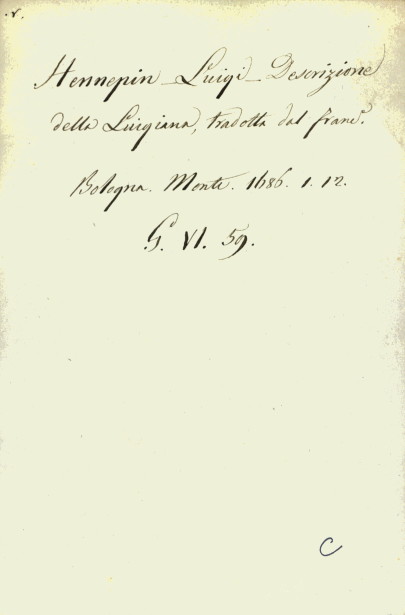 .v.
Hennepin - Luigi - Descrizione
della Luigiana, tradotta dal franc.e
Bologna. Monti. 1686. 1. 12.
G. VI. 59.
C